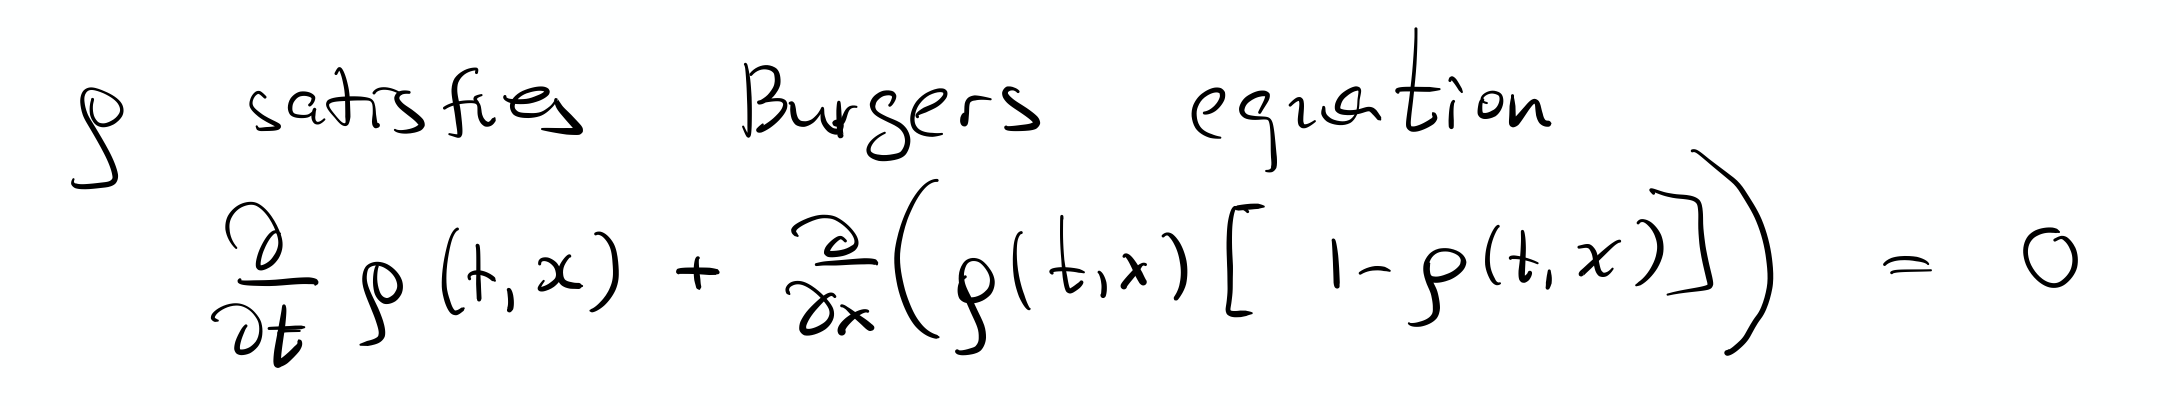 ρ satisfies Burgers equation
∂/∂t ρ(t,x) + ∂/∂x (ρ(t,x)[1-ρ(t,x)]) = 0